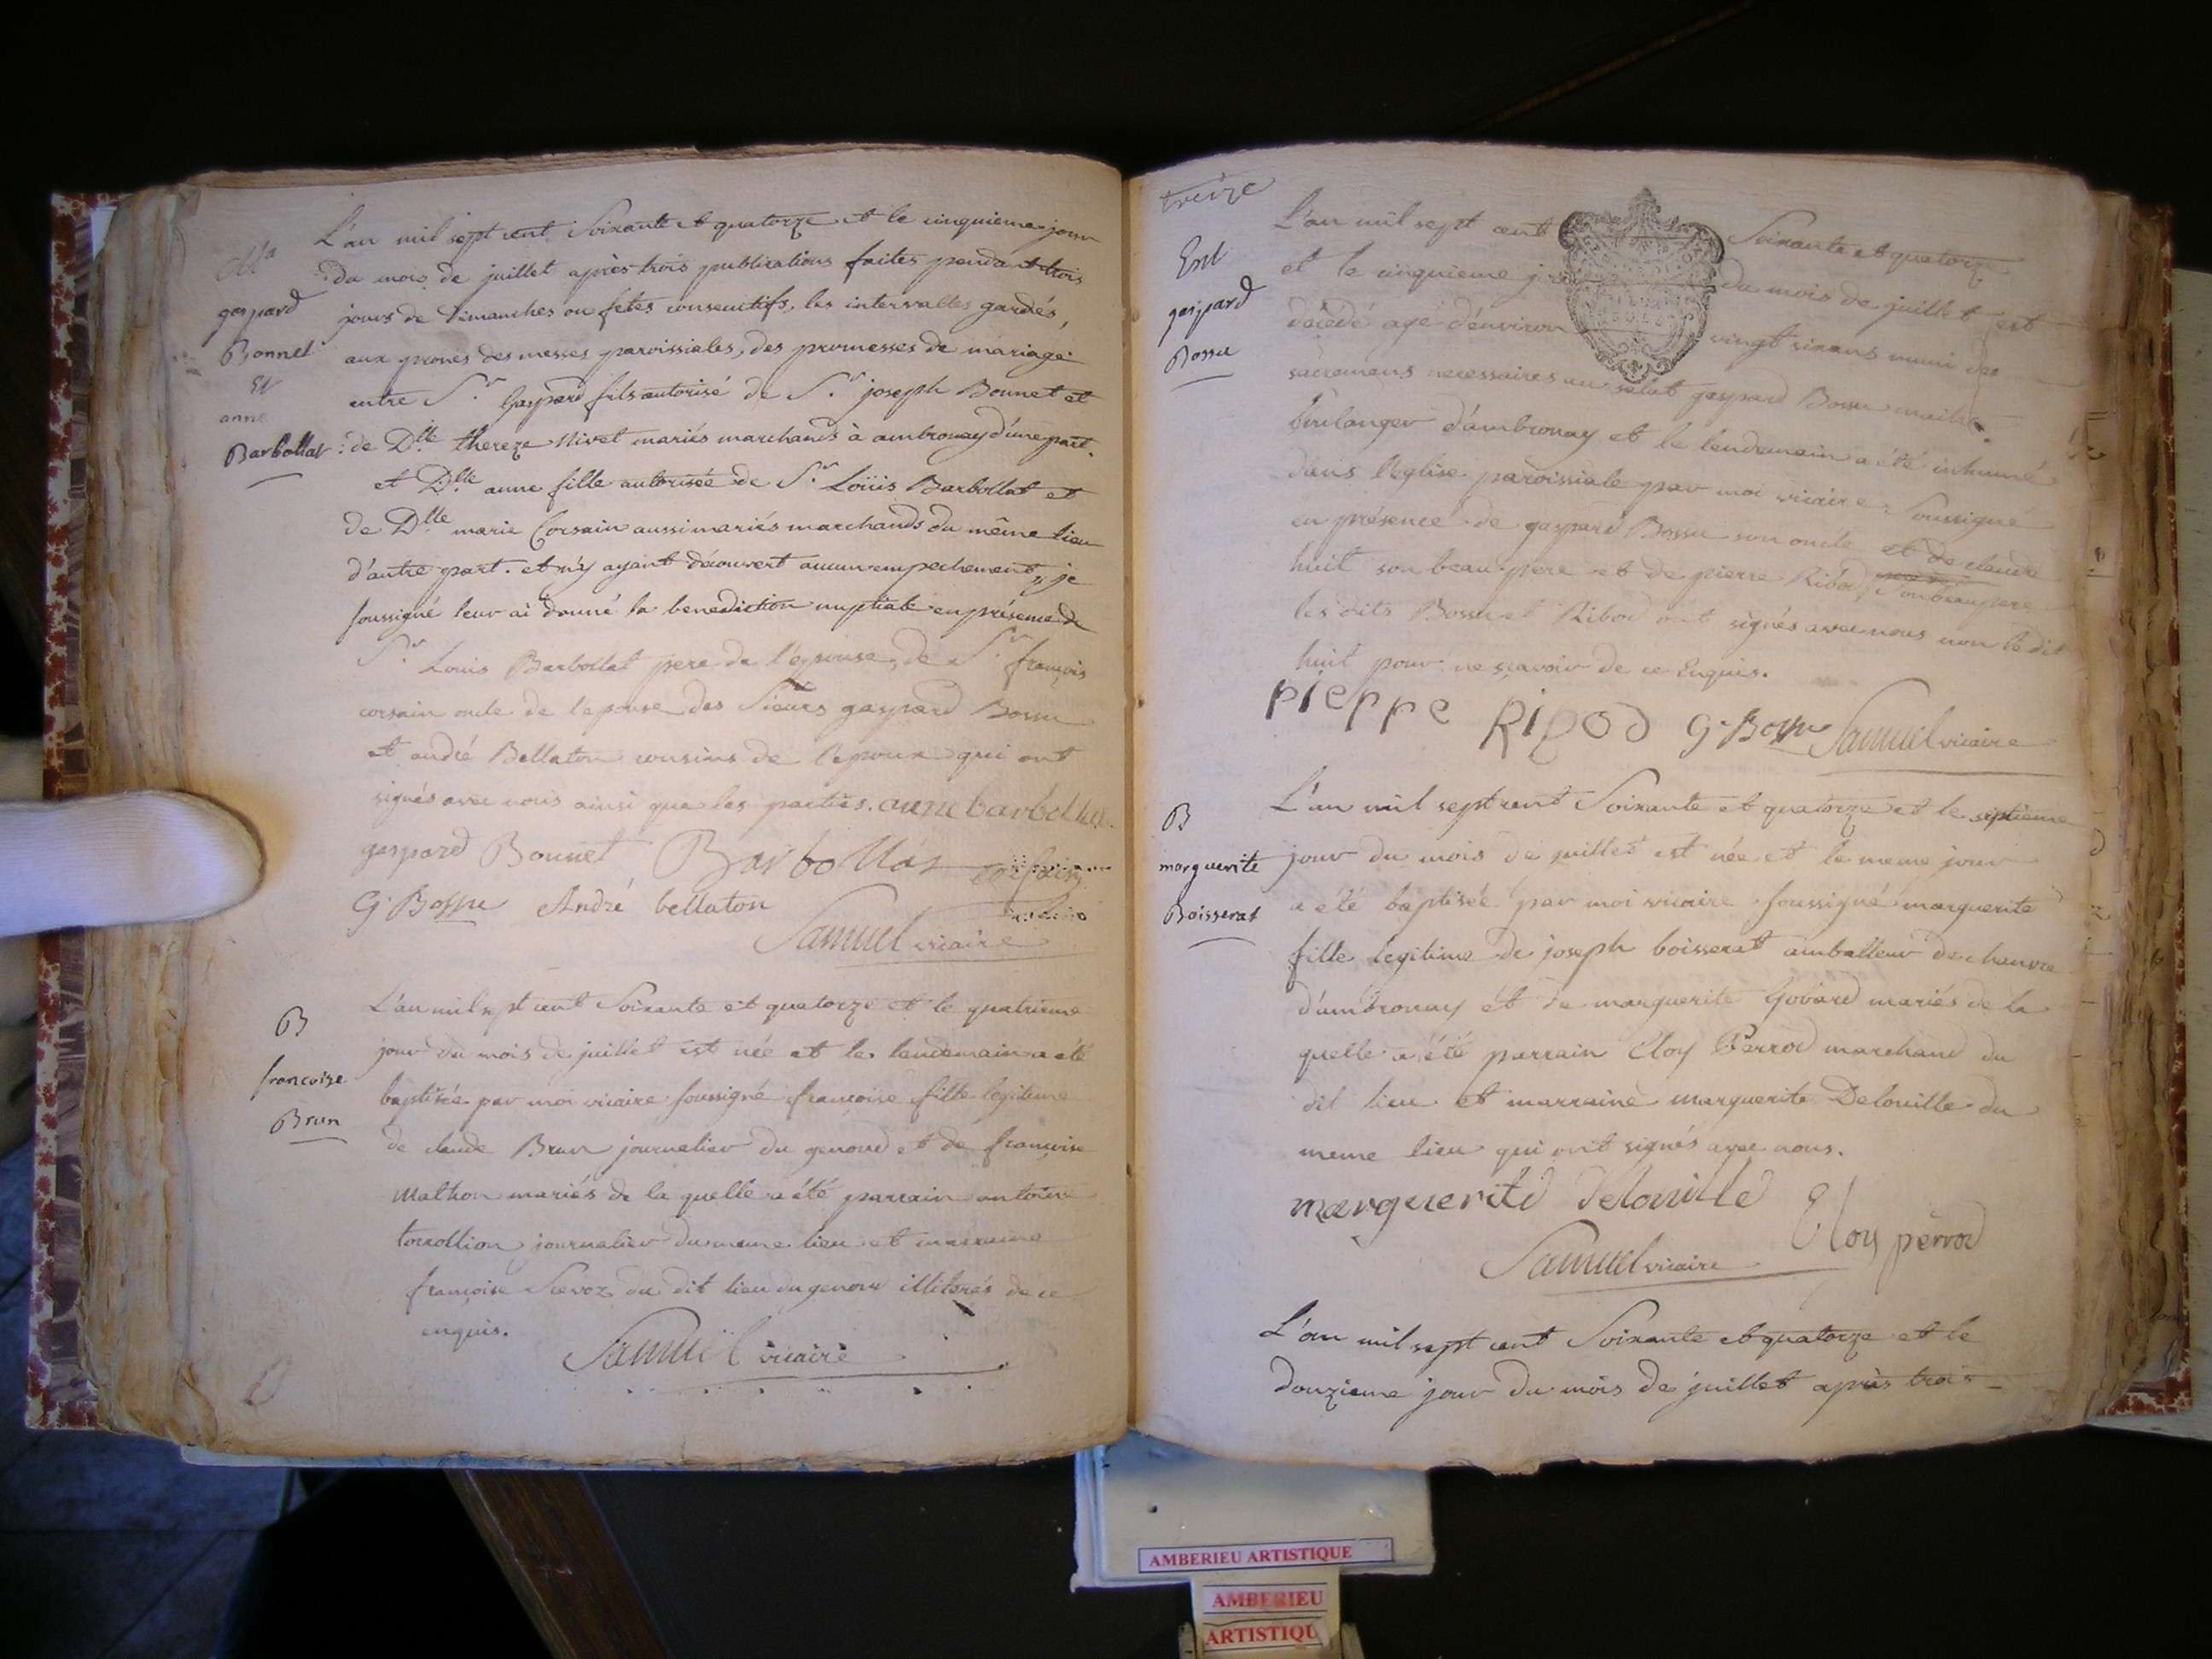 Ma
gaspard
Bonnet
Et
anne
Barbollat
L'an mil sept cent Soixante et quatorze et le cinquieme jour
du mois de juillet après trois publications faites pendant trois
jours de dimanches ou fetes consecutifs, les intervalles gardés,
aux prones des messes paroissiales, des promesses de mariage
entre Sr. Gaspard fils autorisé de Sr. joseph Bonnet et
de Dlle thereze Nivet mariés marchands à ambronay d'une part.
et Dlle anne fille autorisée de Sr. Loüis Barbollat et
de Dlle marie Corsain aussi mariés marchands du même lieu
d'autre part. et n'y ayant découvert aucun empechement, je
soussigné leur ai donné la benediction nuptiale en présence de
Sr. Louis Barbollat pere de l'epouse, de Sr. françois
corsain oncle de l'epouse des Sieurs gaspard Bossu
et andré Bellaton cousins de l'epoux qui ont
signés avec nous ainsi que les parties. anne barbollat
gaspard Bonnet Barbollat corsain
G. Bossu André bellaton
Samuel vicaire
B
francoise
Brun
L'an mil sept cent Soixante et quatorze et le quatrieme
jour du mois de juillet est née et le lendemain a été
baptisée par moi vicaire soussigné françoise fille legitime
de claude Brun journalier du genoud et de françoise
Mathon mariés de la quelle a été parrain antoine
torrollion journalier du meme lieu et marraine
françoise Sevoz du dit lieu du genoux illiterés de ce
enquis.
Samuel vicaire
treize
Ent
gaspard
Bossu
L'an mil sept cent Soixante et quatorze
et le cinquieme jour du mois de juillet est
décédé agé d'environ vingt six ans muni des
sacremens necessaires au salut gaspard Bossu maitre
boulanger d'ambronay et le lendemain a été inhumé
dans l'église paroissiale par moi vicaire Soussigné
en présence de gaspard Bossu son oncle et de claude
huit son beau-pere et de pierre Ribod son beaupere
les dits Bossu et Ribod ont signés avec nous non le dit
huit pour ne sçavoir de ce Enquis.
pierre Ribod G. Bossu Samuel vicaire
B
marguerite
Boisserat
L'an mil sept cent Soixante et quatorze et le septieme
jour du mois de juillet est née et le meme jour
a été baptisée par moi vicaire soussigné marguerite
fille legitime de joseph boisserat amballeur de chanvre
d'ambronay et de marguerite Gobard mariés de la
quelle a été parrain Eloy Perrod marchand du
dit lieu et marraine marguerite Delouille du
meme lieu qui ont signés avec nous.
marguerite delouille Eloy perrod
Samuel vicaire
L'an mil sept cent Soixante et quatorze et le
douzieme jour du mois de juillet après trois
AMBERIEU ARTISTIQUE
AMBERIEU
ARTISTIQU